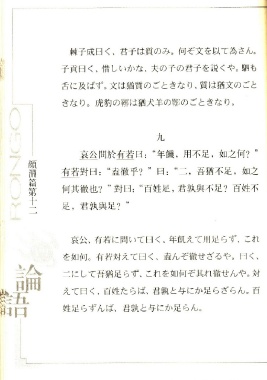 棘子成曰く、君子は質のみ。何ぞ文を以て為さん。
子貢曰く、惜しいかな、夫の子の君子を説くや。駟も
舌に及ばず。文は猶質のごときなり、質は猶文のごと
きなり。虎豹の鞟は猶犬羊の鞟のごときなり。
九
哀公問於有若曰：“年饑，用不足，如之何？”
有若對曰：“盍徹乎？”曰：“二，吾猶不足，如之
何其徹也？”對曰：“百姓足，君孰與不足？百姓不
足，君孰與足？”
哀公、有若に問いて曰く、年飢えて用足らず、これ
を如何。有若対えて曰く、盍んぞ徹せざるや。曰く、
二にして吾猶足らず、これを如何ぞ其れ徹せんや。対
えて曰く、百姓足らば、君孰と与にか足らざらん。百
姓足らずんば、君孰と与にか足らん。
RONGO
顔淵篇第十二
論語